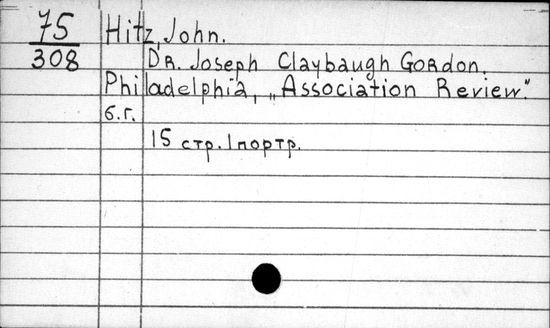 75 Hitz, John.
308 Dr. Joseph Claybaugh Gordon.
Philadelphia, „Association Review."
б.г.
15 стр. 1 портр.